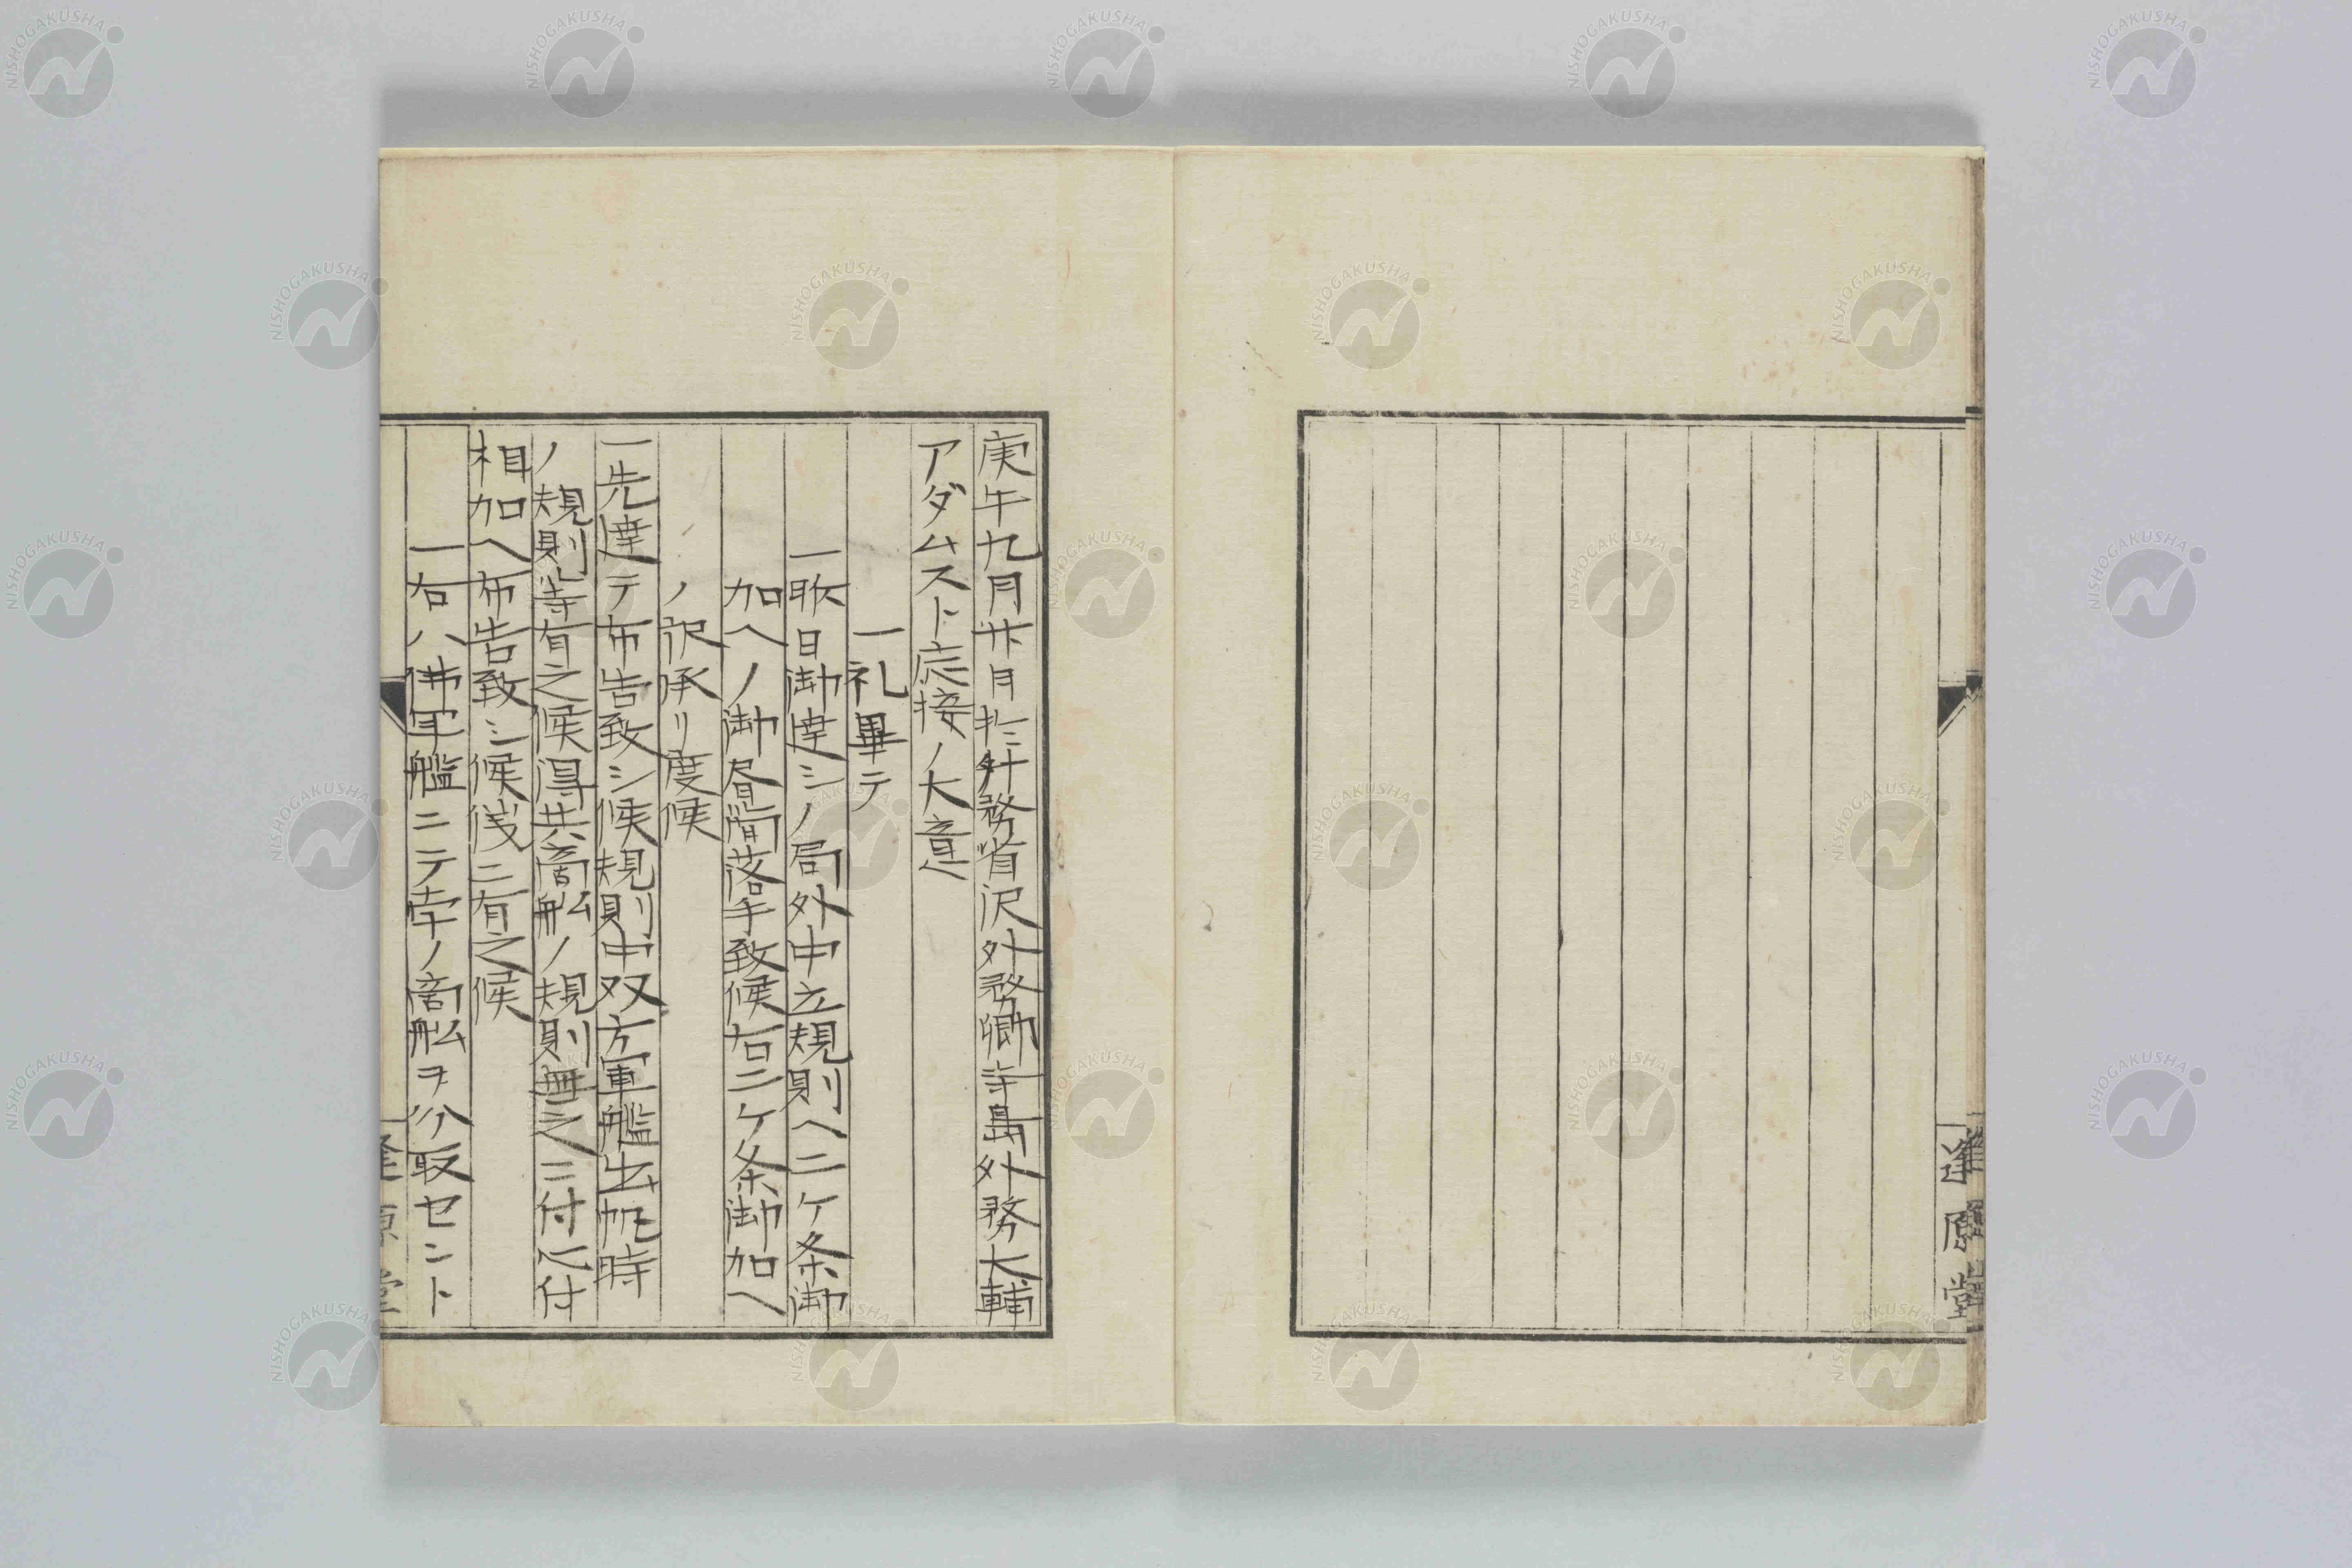 庚午九月廿日於外務省沢外務卿寺島外務大輔
アダムスト応接ノ大意
一礼畢テ
一昨日御達シノ局外中立規則ヘ二ケ条御
加ヘノ御書簡落手致候右二ケ条御加ヘ
ノ訳承リ度候
一先達テ布告致シ候規則中双方軍艦出帆時
ノ規則等有之候得共商船ノ規則無之ニ付心付
相加ヘ布告致シ候儀ニ有之候
一右ハ佛軍艦ニテ孛ノ商船ヲ分取セント
逢原堂
NISHOGAKUSHA